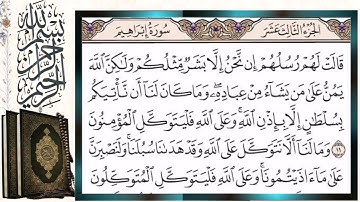 الجزء الثالث عشر
سورة إبراهيم
بسم الله الرحمن الرحيم
قَالَتْ لَهُمْ رُسُلُهُمْ إِن نَّحْنُ إِلَّا بَشَرٌ مِّثْلُكُمْ وَلَٰكِنَّ ٱللَّهَ
يَمُنُّ عَلَىٰ مَن يَشَآءُ مِنْ عِبَادِهِۦ ۖ وَمَا كَانَ لَنَآ أَن نَّأْتِيَكُم
بِسُلْطَٰنٍ إِلَّا بِإِذْنِ ٱللَّهِ ۚ وَعَلَى ٱللَّهِ فَلْيَتَوَكَّلِ ٱلْمُؤْمِنُونَ
١١ وَمَا لَنَآ أَلَّا نَتَوَكَّلَ عَلَى ٱللَّهِ وَقَدْ هَدَىٰنَا سُبُلَنَا ۚ وَلَنَصْبِرَنَّ
عَلَىٰ مَآ ءَاذَيْتُمُونَا ۚ وَعَلَى ٱللَّهِ فَلْيَتَوَكَّلِ ٱلْمُتَوَكِّلُونَ